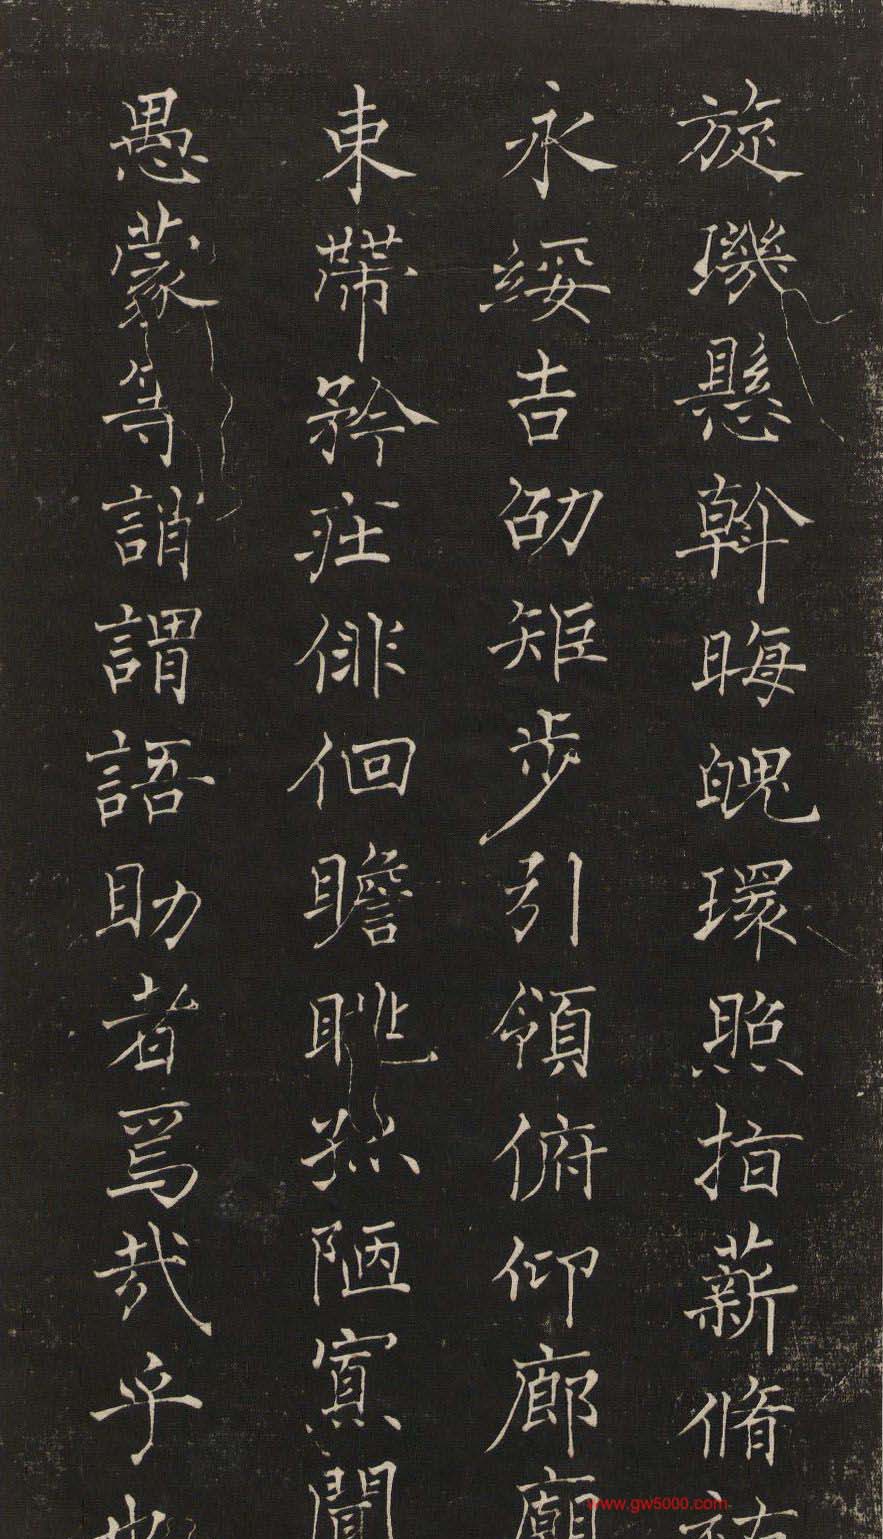 旋璣懸斡晦魄環照指薪脩祜
永綏吉劭矩步引領俯仰廊廟
束帶矜莊俳佪瞻眺孤陋寡聞
愚蒙等誚謂語助者焉哉乎也
www.gw5000.com